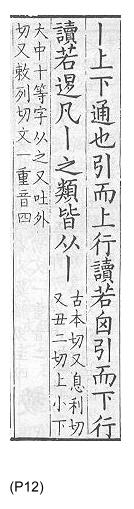 丨上下通也引而上行讀若囟引而下行
讀若凡丨之類皆从丨
古本切又息利切
又丑二切上小下
大中十等字从之又吐外
切又敕列切文一重音四
(P12)